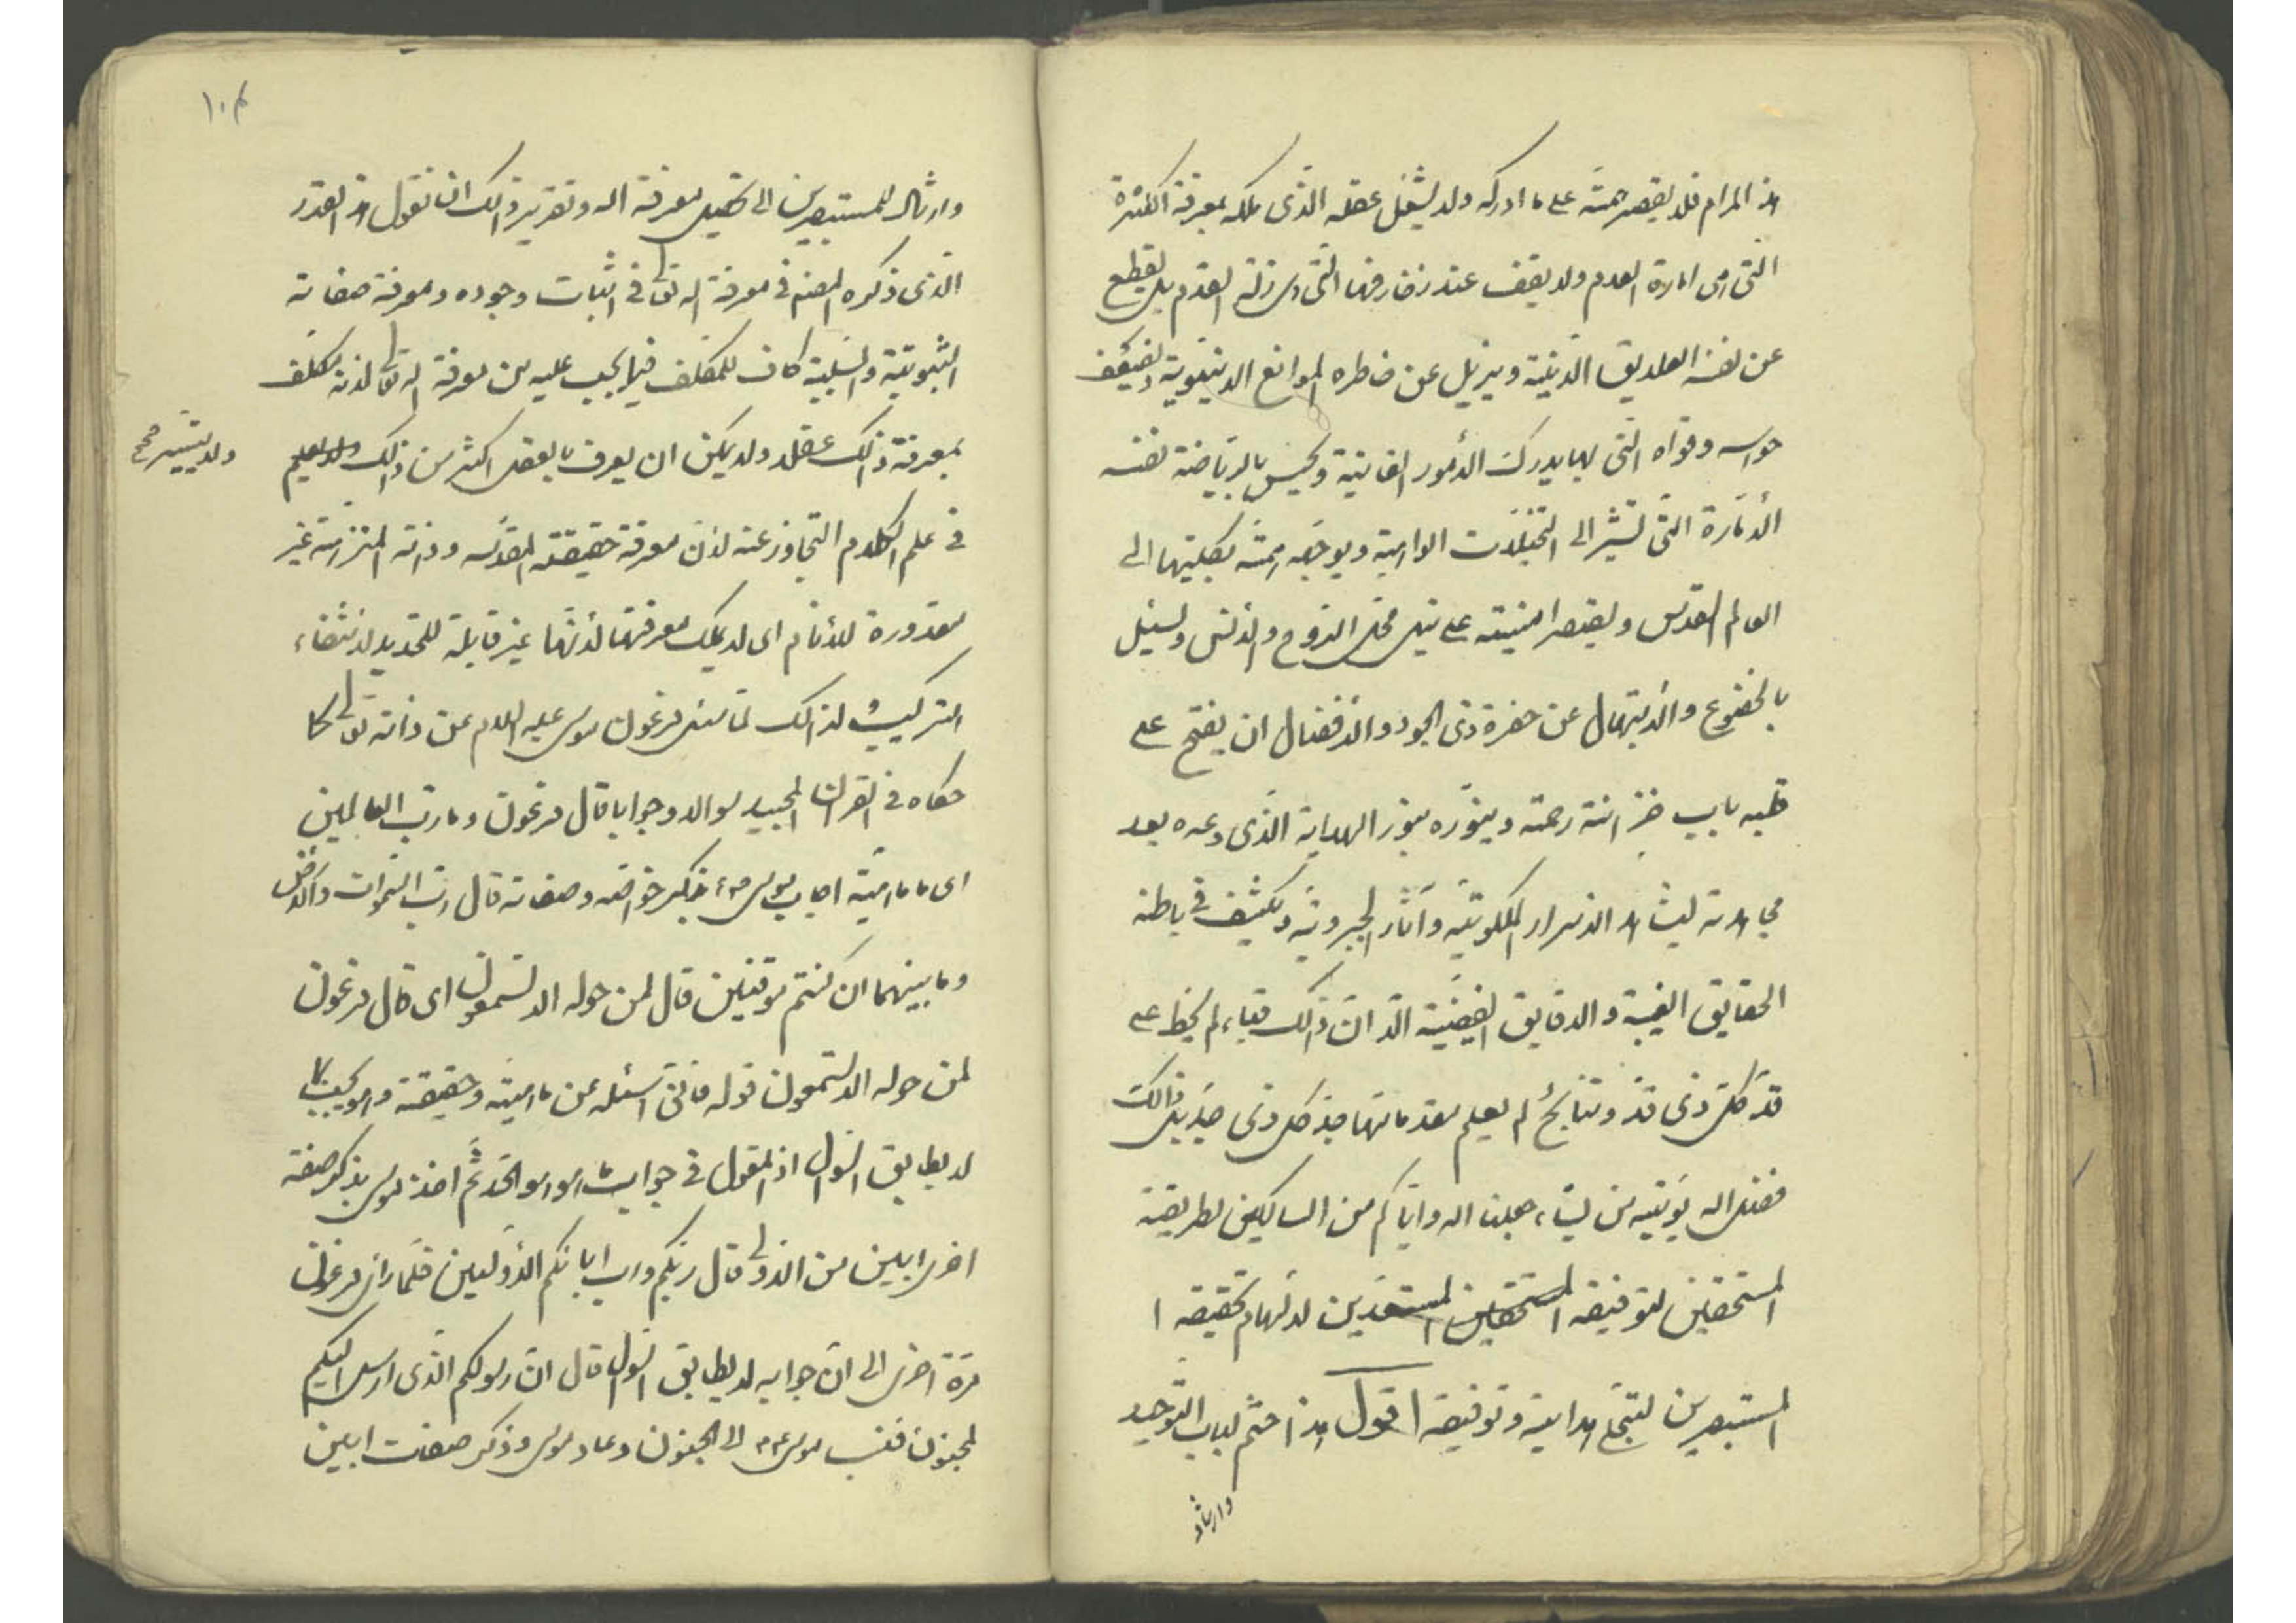 هذا المرام فلا يقصر همته على ما ادركه ولا يشغل عقله الذى ملكه بمعرفة الكثرة
التى هى امارة العدم ولا يقف عند زخارفها التى هى زلة القدم بل يقطع
عن نفسه العلايق الدنية ويزيل عن خاطره الموانع الدنيوية ويضعف
حواسه وقواه التى بها يدرك الأمور الفانية ويحبس بالرياضة نفسه
الأمارة التى تشير الى التخيلات الواهية ويوجه همته بكليتها الى
العالم القدس ويقصر امنيته على نيل محل الروح والانس ويسئل
بالخضوع والابتهال عن حضرة ذى الجود والافضال ان يفتح على
قلبه باب خزانة رحمته وينوره بنور الهداية الذى وعده بعد
مجاهدته ليشاهد الاسرار الملكوتية وآثار الجبروتية ويكشف فى باطنه
الحقايق الغيبية والدقايق الفيضية الا ان ذلك قباء لم يخط على
قد كل ذى قد ونتايج لم يعلم مقدماتها جد كل ذى جد بل ذالك
فضل الله يؤتيه من يشاء جعلنا الله واياكم من السالكين لطريقه
المستحقين لتوفيقه المستحقين المستعدين لالهام تحقيقه ا
المستبصرين لتجلى هدايته وتوفيقه اقول هذا ختم لباب التوحيد
وارشاد
١٠٤
وارشاد للمستبصرين الى تحصيل معرفة الله وتقرير ذلك ان نقول هذا القدر
الذى ذكره المصنف فى معرفة الله تعالى فى اثبات وجوده ومعرفة صفاته
الثبوتية والسلبية كاف للمكلف فيما يجب عليه من معرفة الله تعالى لانه مكلف
بمعرفة ذلك عقلا ولا يمكن ان يعرف بالعقل اكثر من ذلك ولا يعلم
ولا يتيسر صح
فى علم الكلام التجاوز عنه لان معرفة حقيقته المقدسه وذاته المنزهة غير
مقدورة للأنام اى لا يملك معرفتها لأنها غير قابلة للتحديد لانتفاء
التركيب لذلك لما سئل فرعون موسى عليه السلام عن ذاته تعالى كما
حكاه فى القرآن المجيد سوالا وجوابا قال فرعون وما رب العالمين
اى ما ماهيته اجاب موسى ع م بذكر خواصه وصفاته قال رب السموات والأرض
وما بينهما ان كنتم موقنين قال لمن حوله الا تسمعون اى قال فرعون
لمن حوله الا تستمعون قوله فانى اسئله عن ماهيته وحقيقته وهو يجيب بما
لا يطابق السؤال اذ المقول فى جواب ما هو هو الحد ثم اخذ موسى بذكر صفة
اخرى ابين من الاولى قال ربكم ورب ابائكم الأولين فلما راى فرعون
مرة اخرى الى ان جوابه لا يطابق السؤال قال ان رسولكم الذى ارسل اليكم
لمجنون فنسب موسى ع م الى الجنون وعاد موسى وذكر صفت ابين